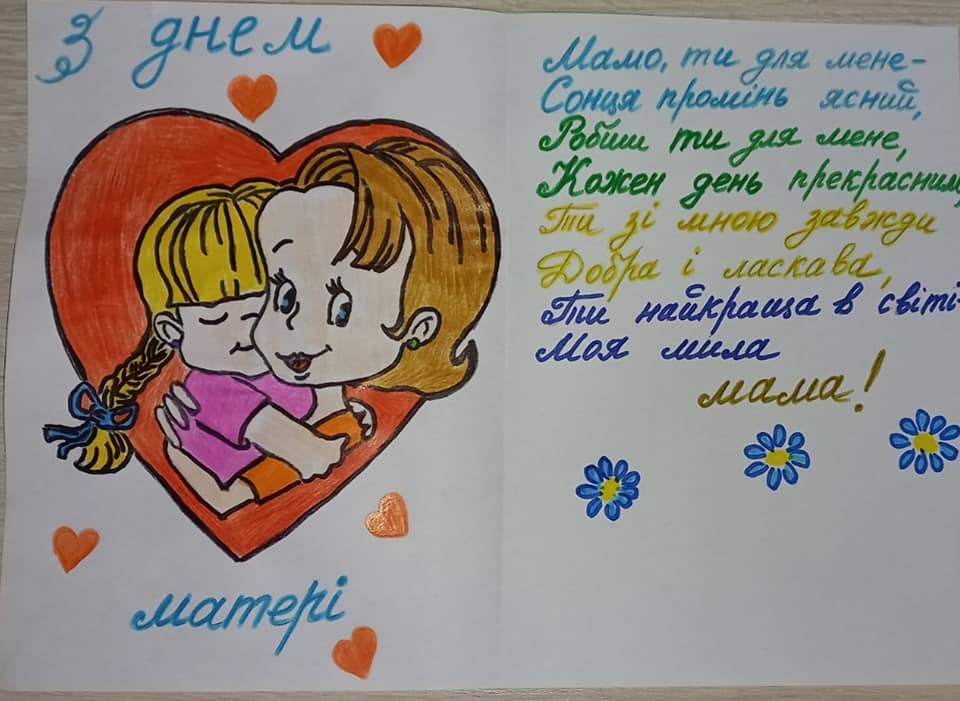 З днем
матері
Мамо, ти для мене-
Сонця промінь ясний,
Робиш ти для мене,
Кожен день прекрасним,
Ти зі мною завжди
Добра і ласкава,
Ти найкраща в світі-
Моя мила
мама!